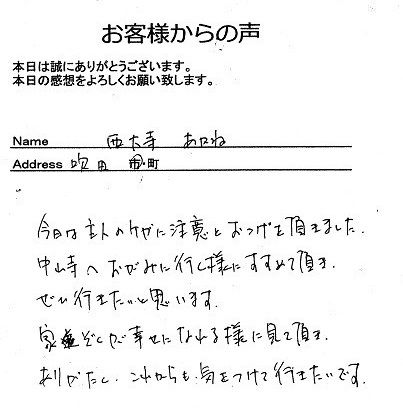 お客様からの声
本日は誠にありがとうございます。
本日の感想をよろしくお願い致します。
Name 西大寺 あかね
Address 吹田 市・町
今日は主人のケガに注意とおつげを頂きました。
中山寺へおがみに行く様にすすめて頂き、
ぜひ行きたいと思います。
家ぞくが幸せになれる様に見て頂き、
ありがたく、これからも気をつけて行きたいです。